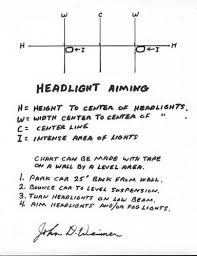 W C W
H I I H
HEADLIGHT AIMING
H= HEIGHT TO CENTER OF HEADLIGHTS.
W= WIDTH CENTER TO CENTER OF "
C= CENTER LINE
I= INTENSE AREA OF LIGHTS
CHART CAN BE MADE WITH TAPE
ON A WALL BY A LEVEL AREA.
1. PARK CAR 25" BACK FROM WALL.
2. BOUNCE CAR TO LEVEL SUSPENSION.
3. TURN HEADLIGHTS ON LOW BEAM.
4. AIM HEADLIGHTS AND/OR FOG LIGHTS.
John D. Weimer